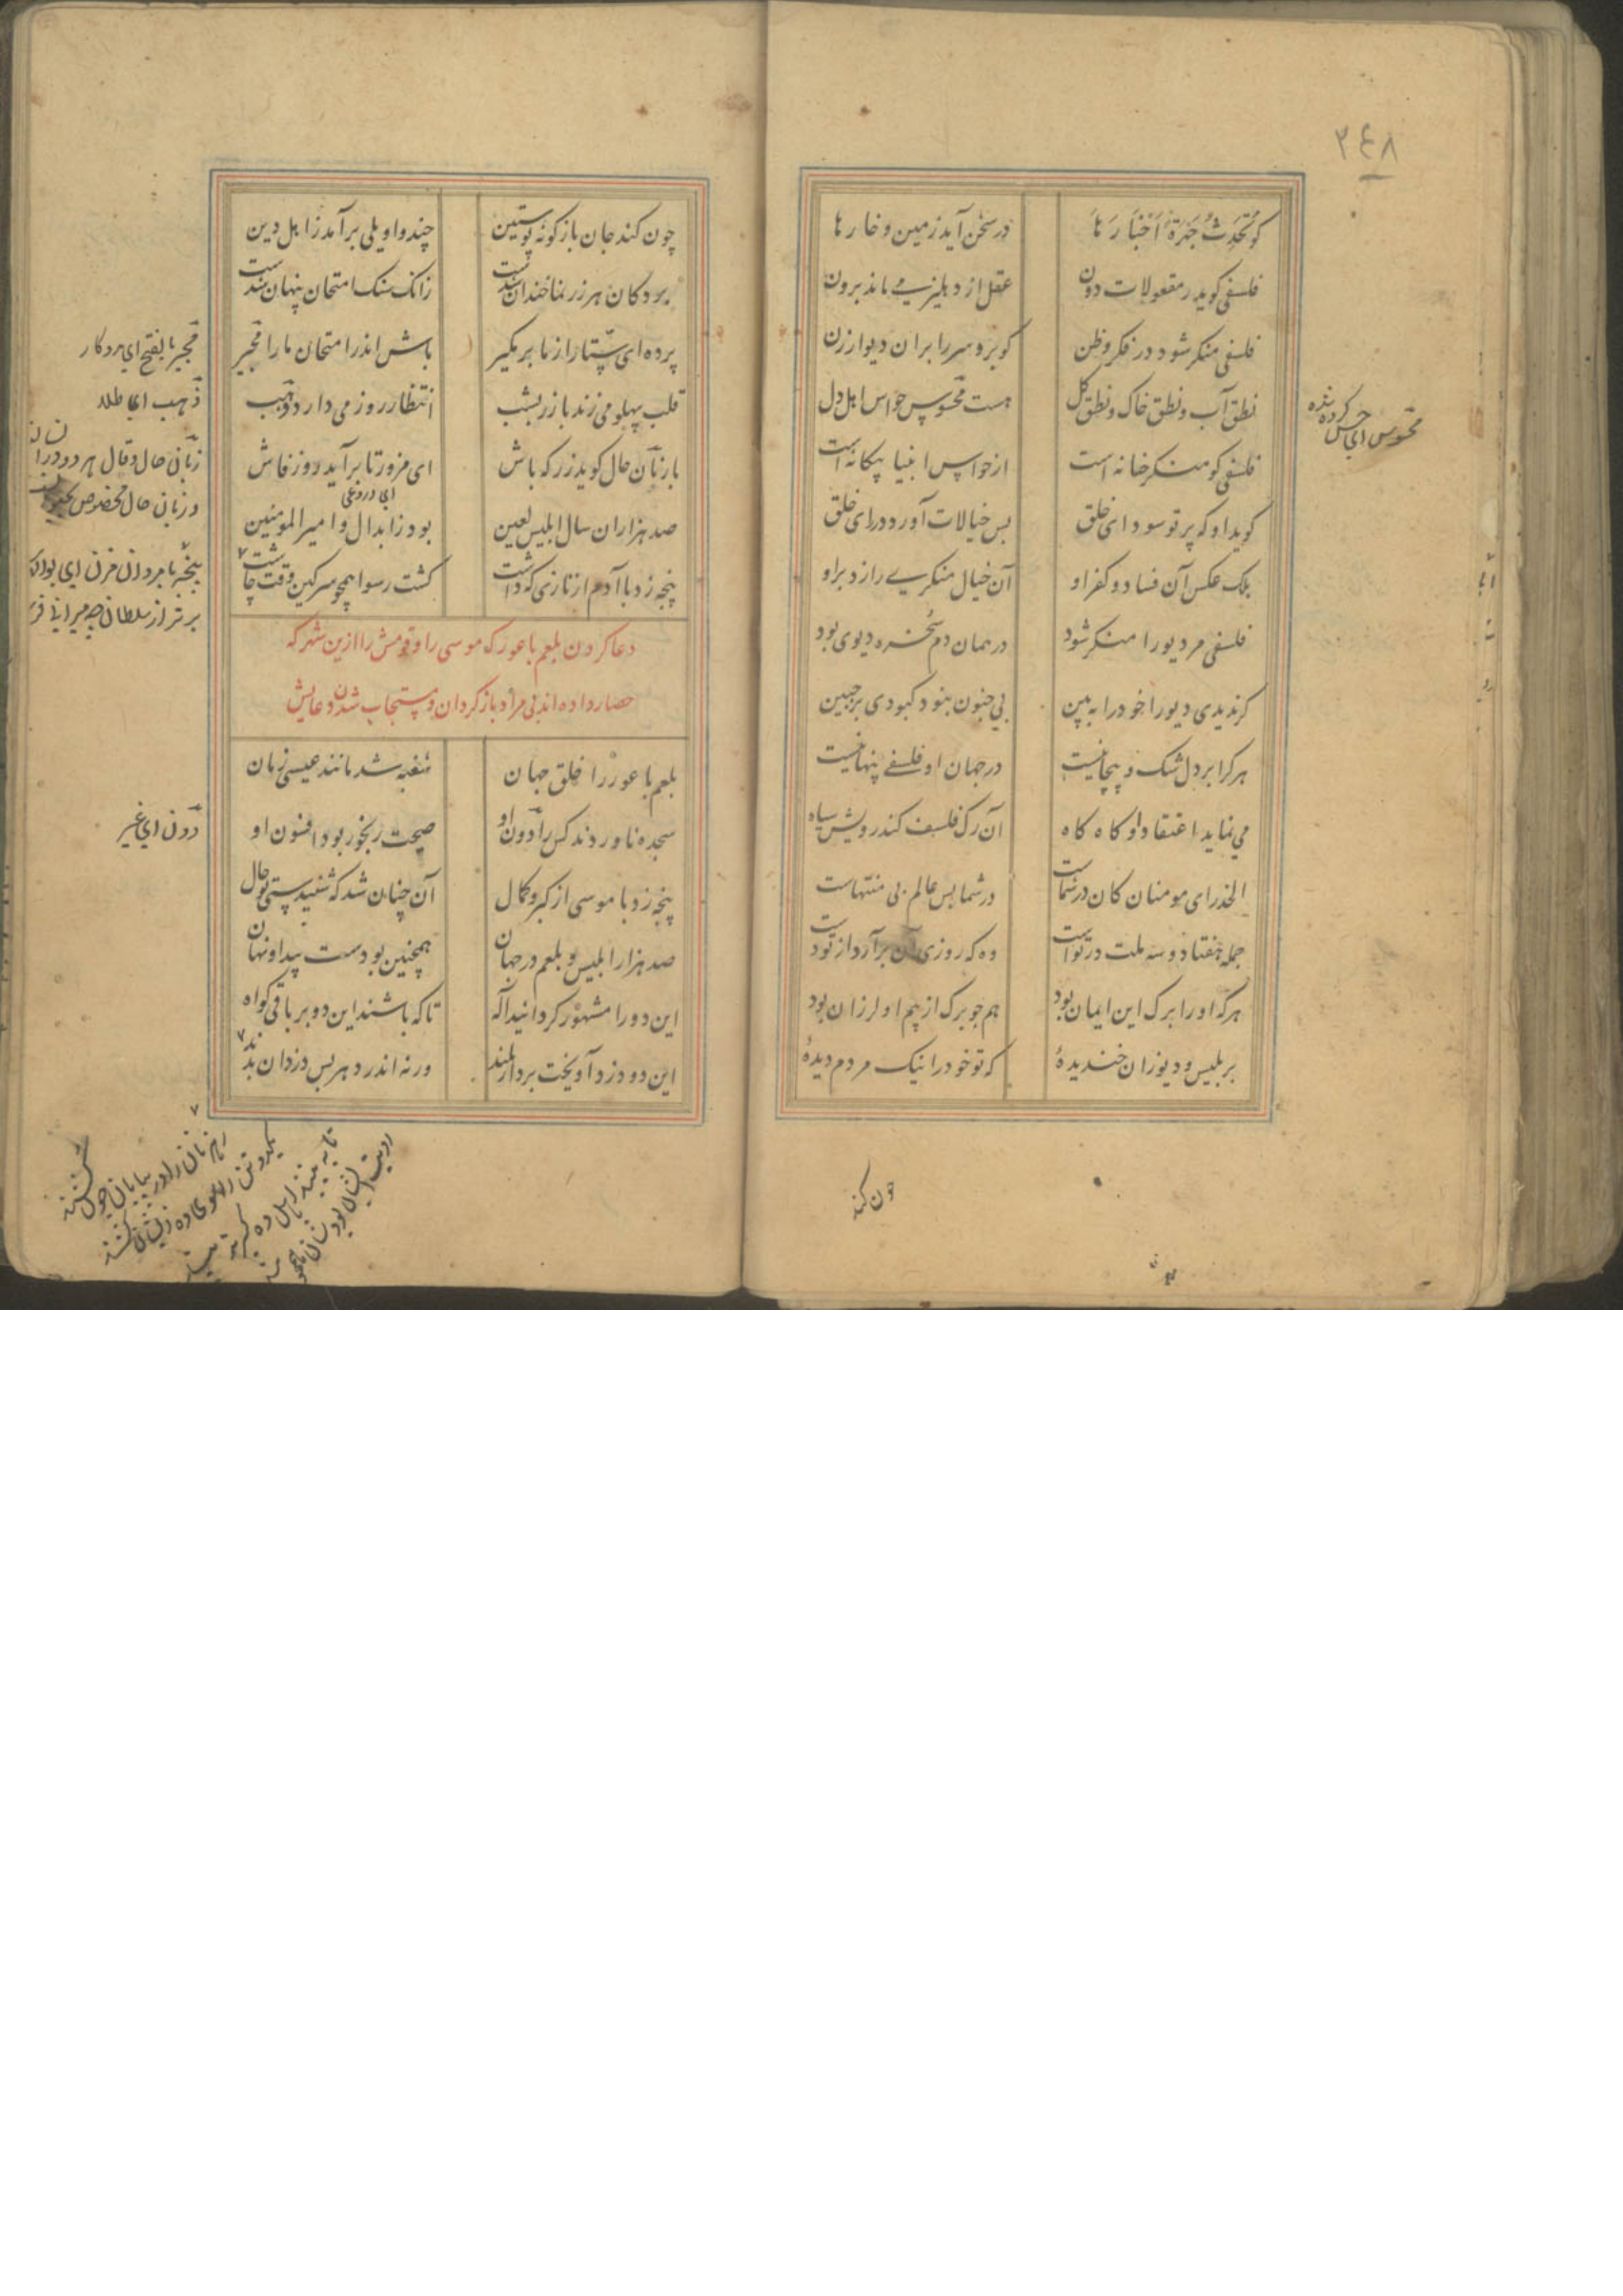 ۲۴۸
کو تُحَدِّثُ جَهْرَةً اَخْبَارَهَا
در سخن آید زمین و خارها
فلسفی کوید ر معقولات دون
عقل از دهلیز می ماند برون
فلسفی منکر شود در فکر و ظن
کو برو سر را بران دیوار زن
نطق آب و نطق خاک و نطق کل
هست محسوس حواس اهل دل
فلسفی کو منکر حنانه است
از حواس انبیا بیکانه است
کوید او که پرتو سودای خلق
بس خیالات آورد در رای خلق
بلک عکس آن فساد و کفر او
آن خیال منکری را زد برو
فلسفی مر دیو را منکر شود
در همان دم سخره دیوی بود
کر ندیدی دیو را خود را ببین
بی جنون نبود کبودی بر جبین
هر کرا بر دل شک و پیچانیست
در جهان او فلسفی پنهانیست
می نماید اعتقاد او کاه کاه
آن رک فلسف کند رویش سیاه
الحذر ای مومنان کان در شماست
در شما بس عالم بی منتهاست
جمله هفتاد و سه ملت در توا ست
وه که روزی آن برآرد از تو دست
هر که او را برک این ایمان بود
هم چو برک از بیم او لرزان بود
بر بلیس و دیو زان خندیدهٔ
که تو خود را نیک مردم دیدهٔ
محسوس ای حس کرده شده
چون کند
چون کند جان بازکونه پوستین
چند واویلی برآمد ز اهل دین
بر دکان هر زرنما خندان شدست
زانک سنک امتحان پنهان شدست
پرده ای ستار از ما بر مکیر
باش اندر امتحان ما را مجیر
قلب پهلو می زند با زر بشب
انتظار روز می دارد ذهب
با زبان حال کوید زر که باش
ای مزور تا برآید روز فاش
ای دروغی
صد هزاران سال ابلیس لعین
بود ز ابدال و امیر المومنین
پنجه زد با آدم از نازی که داشت
کشت رسوا همچو سرکین وقت چاشت
دعا کردن بلعم باعور که موسی را و قومش را ازین شهر که
حصار داده اند بی مراد باز کردان و مستجاب شدن دعایش
بلعم باعور را خلق جهان
سغبه شد مانند عیسی زمان
سجده ناوردند کس را دون او
صحت رنجور بود افسون او
پنجه زد با موسی از کبر و کمال
آن چنان شد که شنیدستی تو حال
صد هزار ابلیس و بلعم در جهان
همچنین بودست پیدا و نهان
این دو را مشهور کردانید اله
تا که باشند این دو بر باقی کواه
این دو دزد آویخت بر دار بلند
ورنه اندر دهر بس دزدان بدند
مجیر بالفتح ای مددکار
ذهب ای طلا
زبان حال و قال هر دو درا
و زبان حال مخصوص
پنجه با مردان مزن ای بوالهو
برتر از سلطان چه میرانی فر
دون ای غیر
رهزنان را در بیابان چون
یکدو تن را سوی ده
تا به بینند اهل ده
رویت ایشان بود